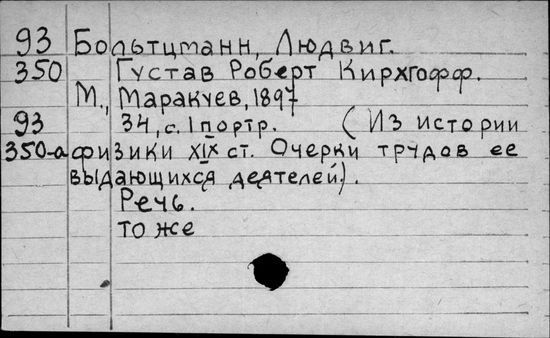 93 Больтцманн, Людвиг.
350 Густав Роберт Кирхгофф.
М., Маракуев, 1897
93 34, с. 1 портр. (Из истории
350-а физики XIX ст. Очерки трудов ее
выдающихся деятелей).
Речь.
то же